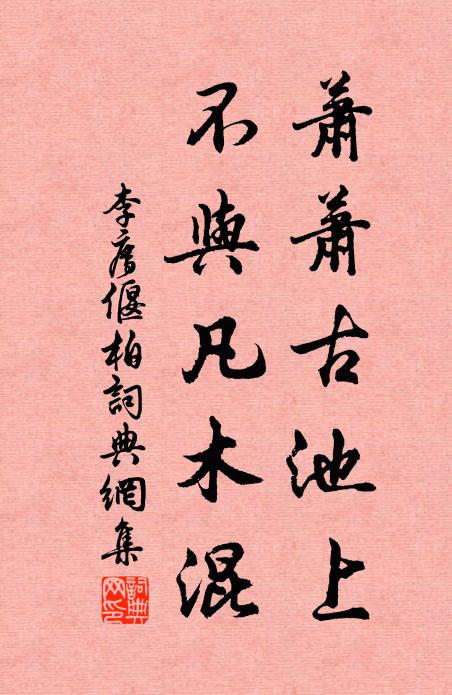 蕭蕭古池上
不與凡木混
李廌偃柏詞典網集
詞典網印